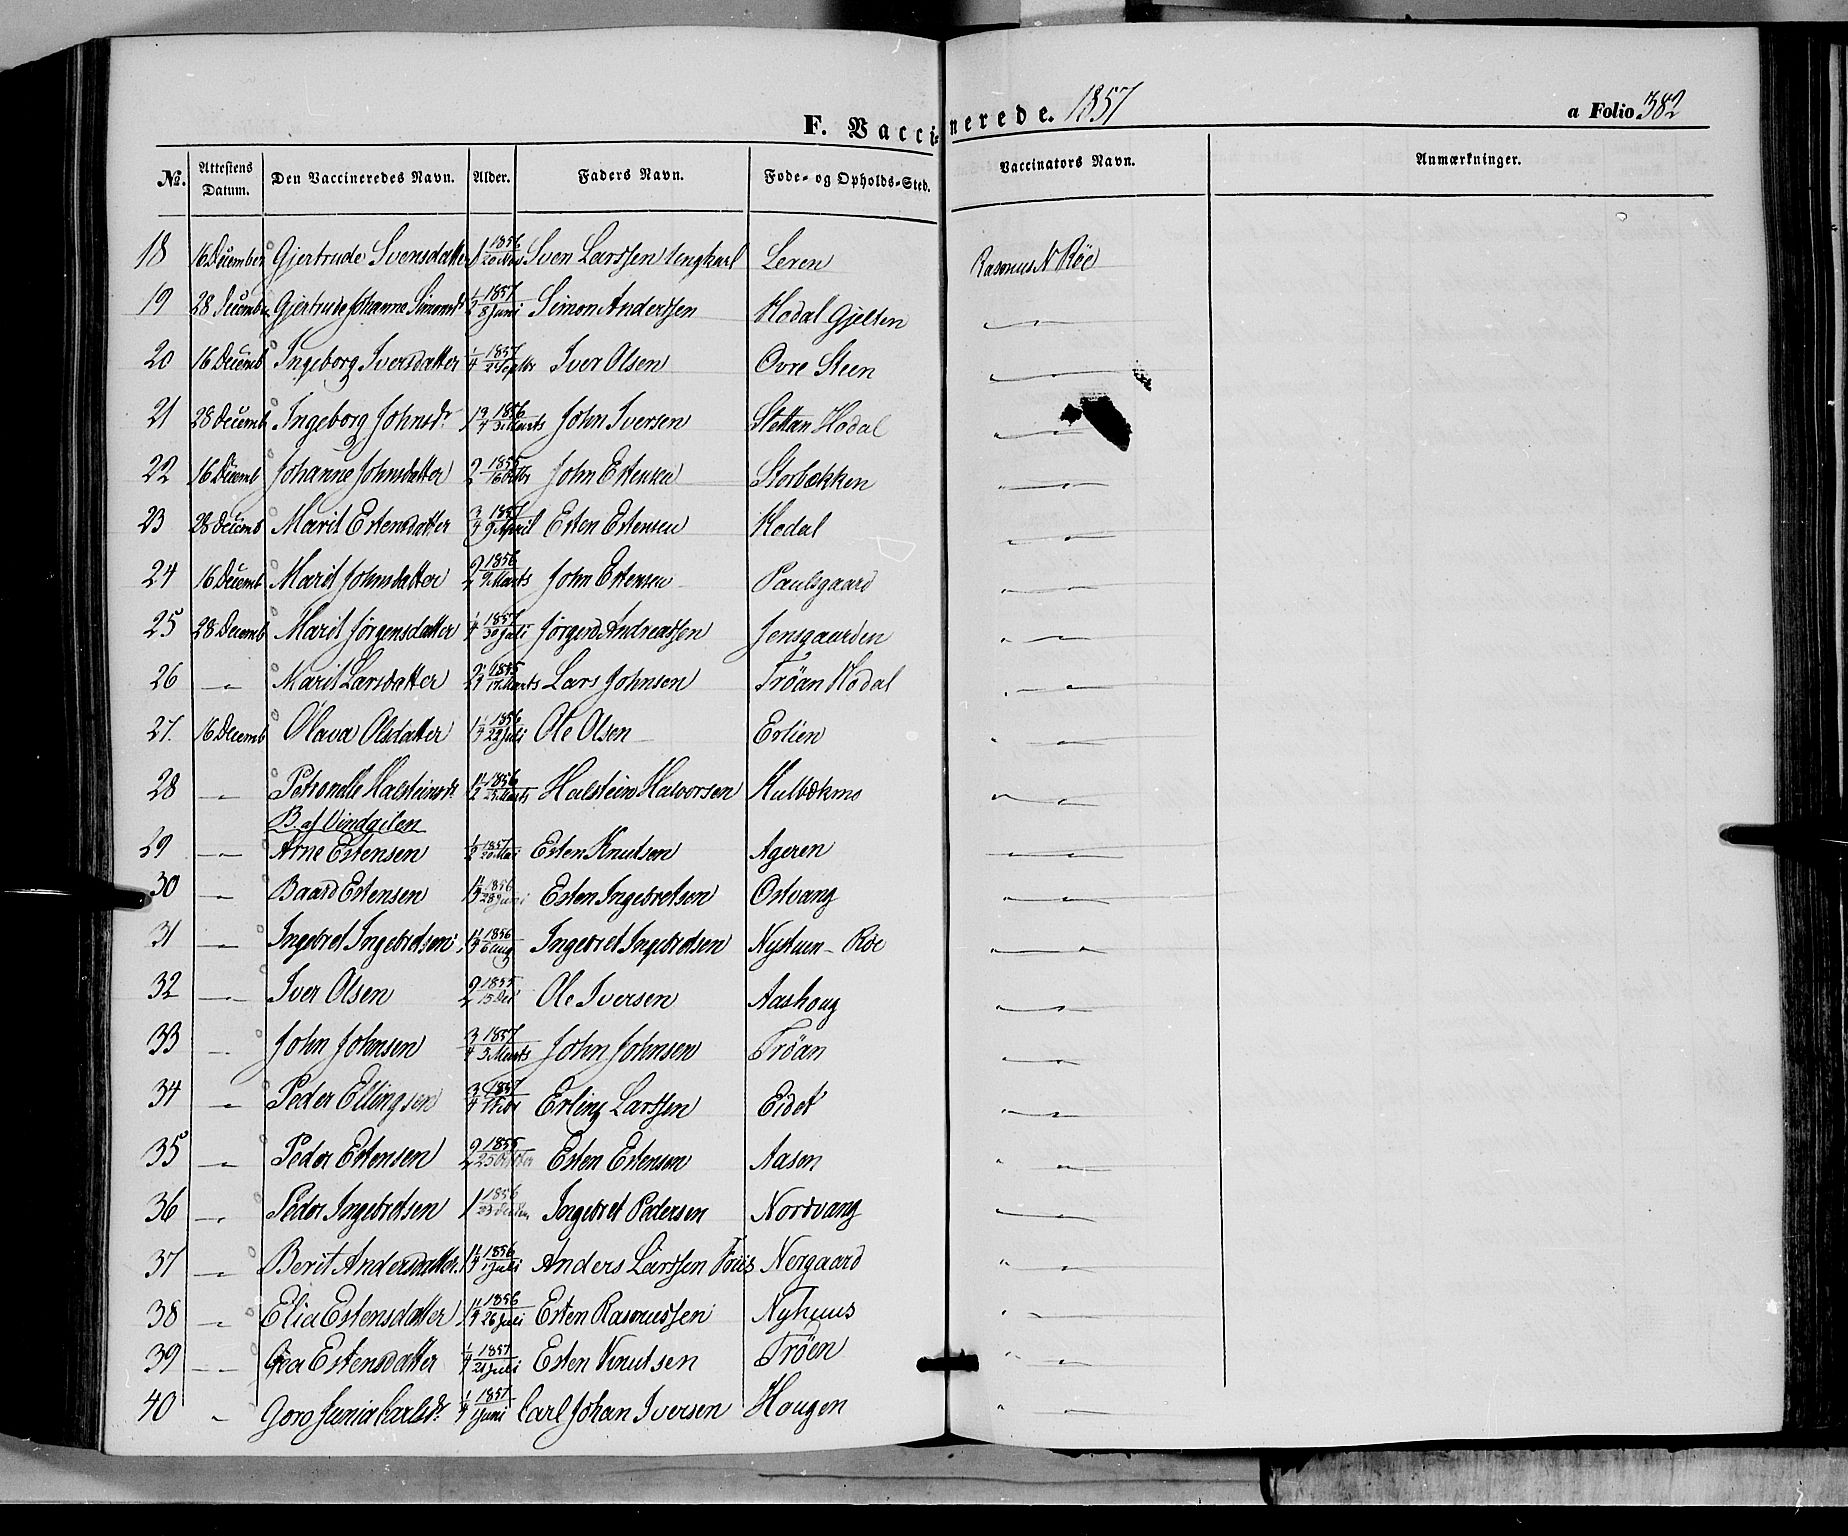 F. Vaccinerede. 1857
a Folio 382
No. Attestens Datum. Den Vaccineredes Navn. Alder. Faders Navn. Føde- og Opholds-Sted. Vaccinators Navn. Anmærkninger.
18 16 December Gjertrude Svensdatter 1 1856 20 Nov Sven Larssen Leren Rasmus N Röe
19 28 Decemb Gjertrude Johanne Simonsd 1/2 1857 8 Juni Simon Anderssen Hodal Gjelten — " —
20 16 Decemb Ingeborg Iversdatter 1/4 1857 Septbr Iver Olsen Ovre Steen — " —
21 28 Decemb Ingeborg Johnsdr 1 3/4 1856 Marts John Iversen Stettan Hodal — " —
22 16 Decemb Johanne Johnsdatter 2 1855 16 Octbr John Estensen Storbækken — " —
23 28 Decemb Marit Estensdatter 3/4 1857 9 April Esten Estensen Hodal — " —
24 16 Decemb Marit Johnsdatter 2 1856 9 Marts John Estensen Paulsgaard — " —
25 28 Decemb Marit Jørgensdatter 1/4 1857 30 Juli Jørgen Andreassen Jensgaarden — " —
26 — " — Marit Larsdatter 2 3/4 1855 17 Marts Lars Johnsen Tröan Hodal — " —
27. 16 Decemb Olava Olsdatter 1 1/4 1856 22 Juli Ole Olsen Erlien " "
28 — " — Petronelle Halsteinsdr 1 1/2 1856 25 Marts Halstein Halvorsen Kulbækmo " "
B. af Vindgelen
29 — " — Arne Estensen 1/2 1857 20 Mai Esten Knutsen Ageren — " —
30 — " — Baard Estensen 1 1/2 1856 28 Juni Esten Ingebretsen Ostvang — " —
31 — " — Ingebret Ingebretsen 1 1/4 1856 6 Aug Ingebret Ingebretsen Nystuen - Röe " "
32 — " — Iver Olsen 2 1855 15 Dec Ole Iversen Aashoug — " —
33 — " — John Johnsen 3/4 1857 3 Marts John Johnsen Tröan — " —
34 — " — Peder Ellingsen 3/4 1857 Erling Larssen Eidet — " —
35 — " — Peder Estensen 2 1855 25 October Esten Estensen Aasen " "
36 — " — Peder Ingebretsen 1 1856 23 Ingebret Pedersen Nordvang — " —
37 — " — Berit Andersdatter 1 1/4 1856 1 Juli Anders Larssen Nergaard " "
38 — " — Elia Estensdatter 1 1/4 1856 26 Juli Esten Rasmussen Nyhuus " "
39 — " — Goa Estensdatter 1/4 1857 21 Juli Esten Knutsen Tröen " "
40 " Goro Carlsdr 1/4 1857 1 Juni Carl Johan Iversen Haugen " "